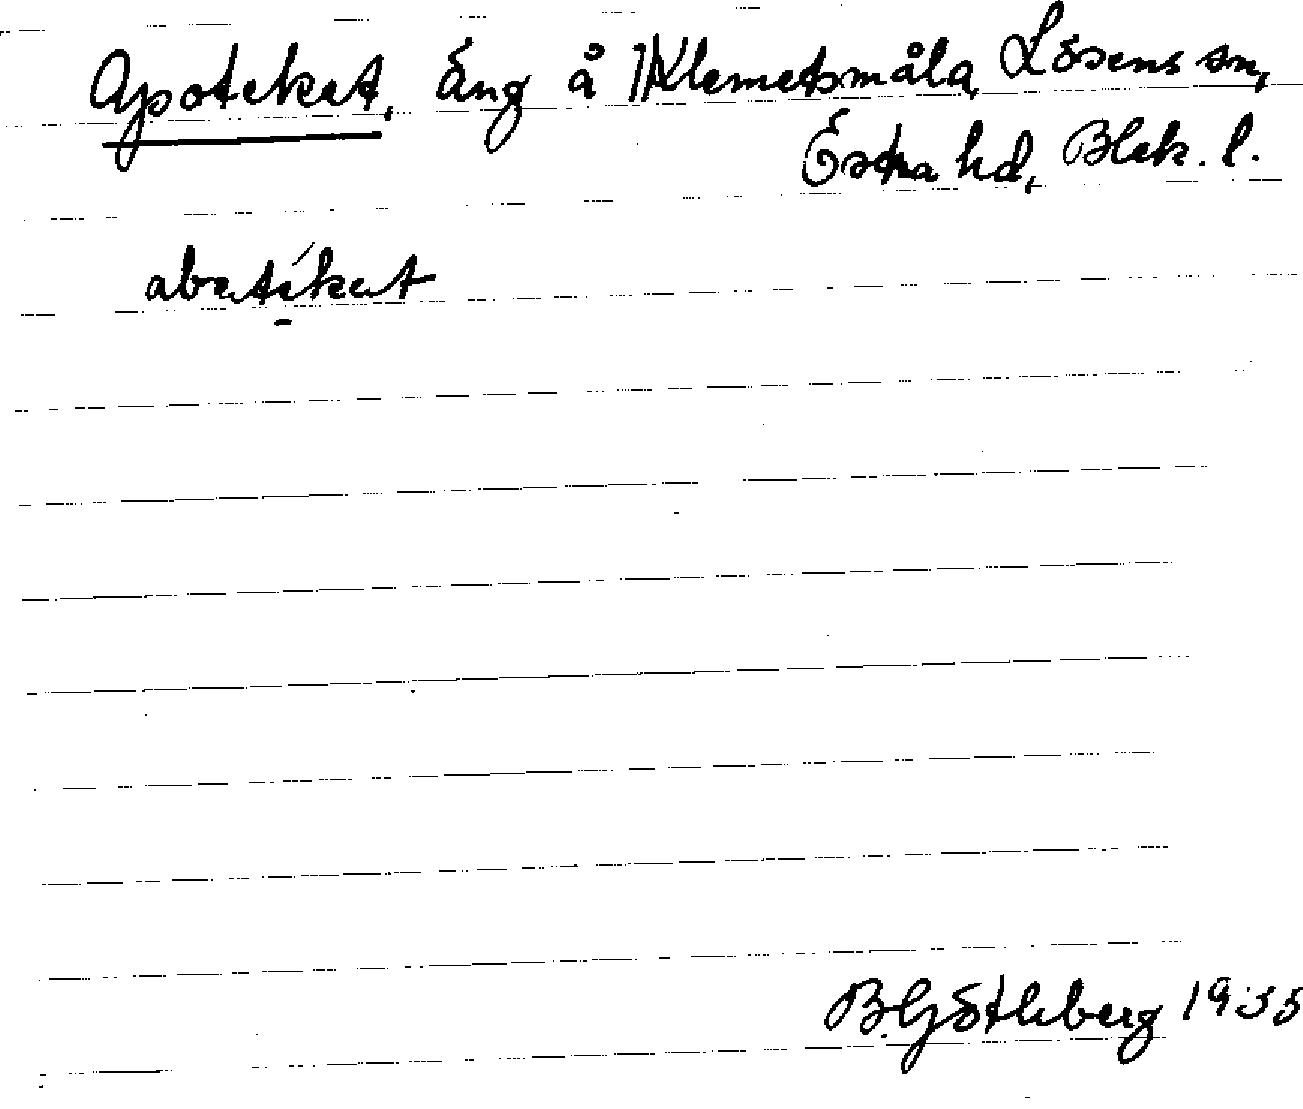 Apoteket, äng å Klemetsmåla, Lösens sn,
Östra hd, Blek. l.
abatékat
B. Göthberg 1935